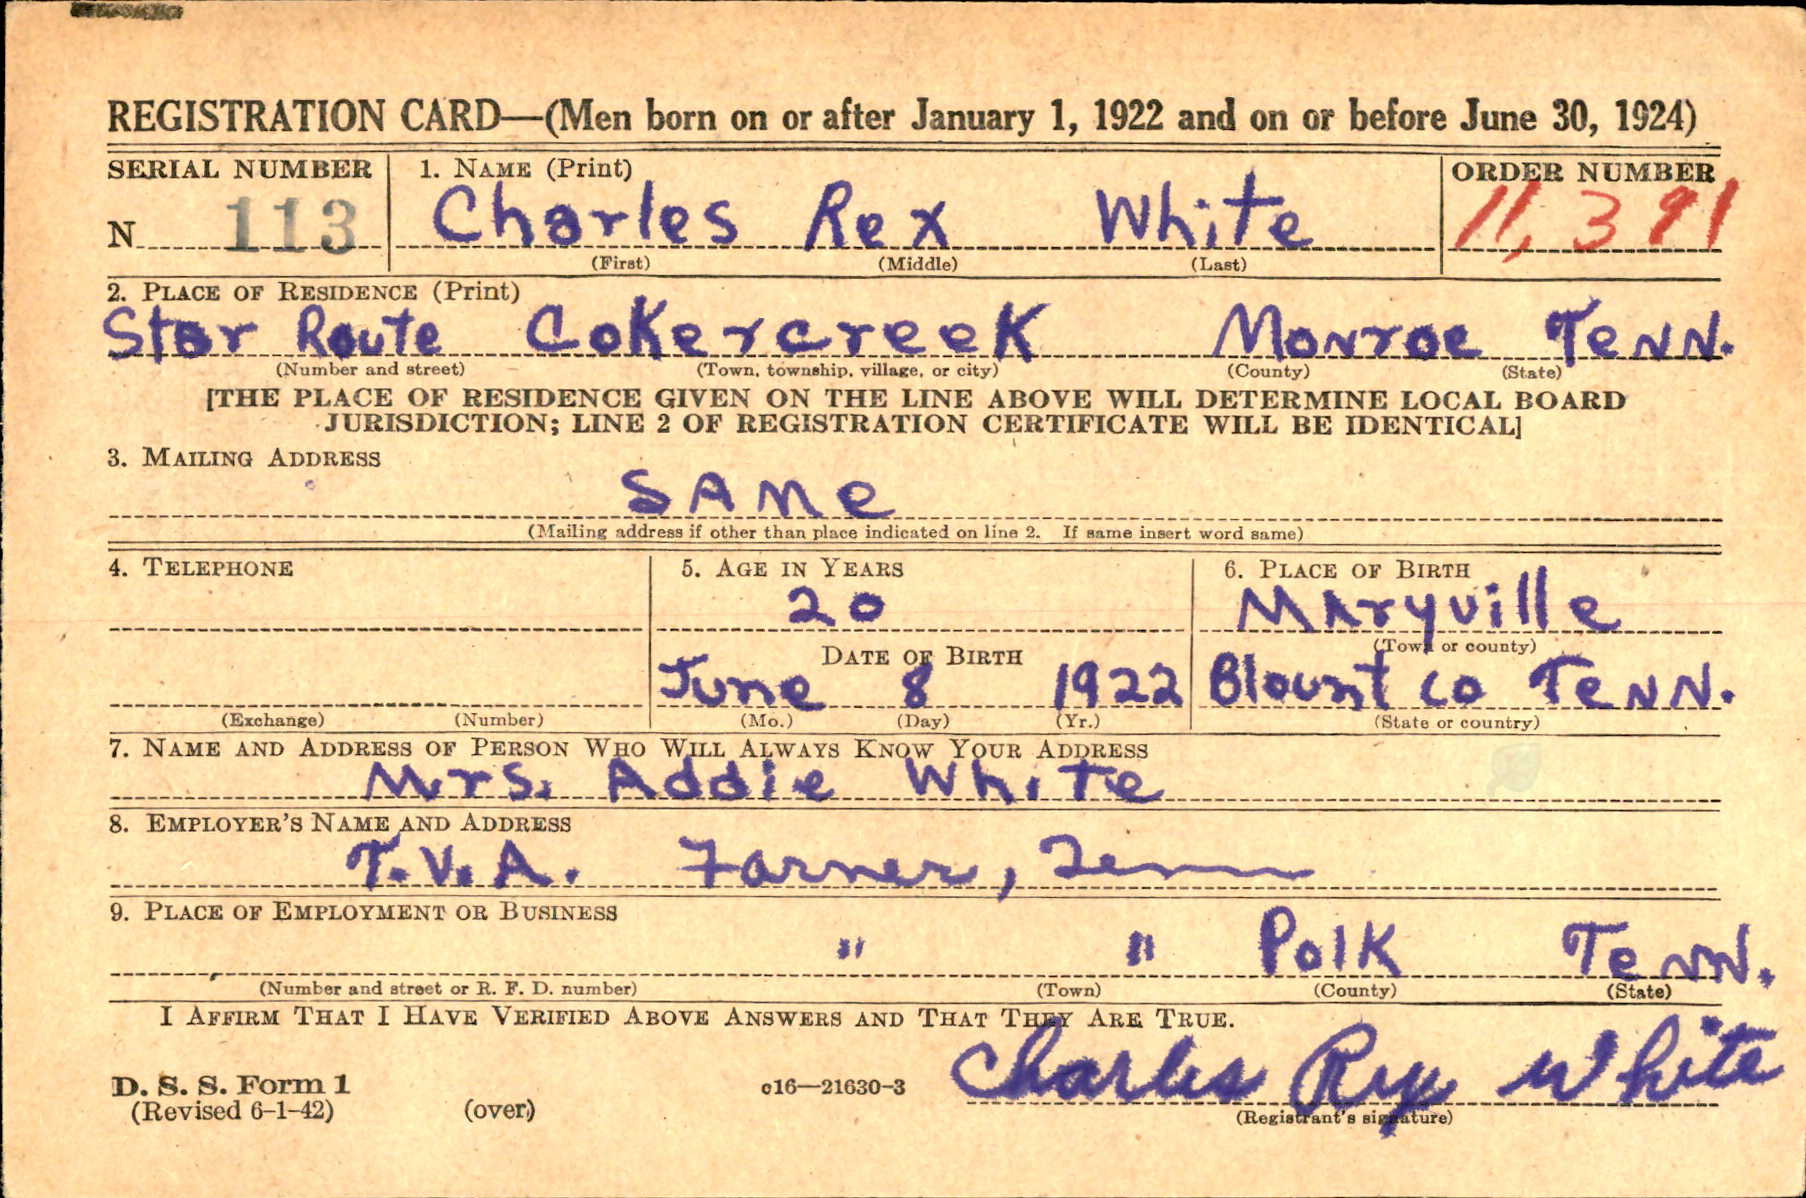 REGISTRATION CARD—(Men born on or after January 1, 1922 and on or before June 30, 1924)
SERIAL NUMBER 1. NAME (Print) ORDER NUMBER
N 113 Charles Rex White 11,391
(First) (Middle) (Last)
2. PLACE OF RESIDENCE (Print)
Star Route Cokercreek Monroe Tenn.
(Number and street) (Town, township, village, or city) (County) (State)
[THE PLACE OF RESIDENCE GIVEN ON THE LINE ABOVE WILL DETERMINE LOCAL BOARD
JURISDICTION; LINE 2 OF REGISTRATION CERTIFICATE WILL BE IDENTICAL]
3. MAILING ADDRESS
SAMe
(Mailing address if other than place indicated on line 2. If same insert word same)
4. TELEPHONE 5. AGE IN YEARS 6. PLACE OF BIRTH
20 Maryville
DATE OF BIRTH (Town or county)
June 8 1922 Blount co Tenn.
(Exchange) (Number) (Mo.) (Day) (Yr.) (State or country)
7. NAME AND ADDRESS OF PERSON WHO WILL ALWAYS KNOW YOUR ADDRESS
Mrs. Addie White
8. EMPLOYER'S NAME AND ADDRESS
T.V.A. Farner, Tenn
9. PLACE OF EMPLOYMENT OR BUSINESS
" " Polk Tenn.
(Number and street or R. F. D. number) (Town) (County) (State)
I AFFIRM THAT I HAVE VERIFIED ABOVE ANSWERS AND THAT THEY ARE TRUE.
D. S. S. Form 1 c16—21630-3 Charles Rex White
(Revised 6-1-42) (over) (Registrant's signature)